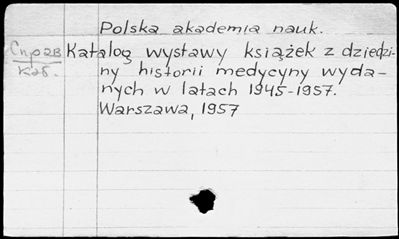 Polska akademia nauk.
Спр2В Katalog wystawy książek z dziedzi-
Каб. ny historii medycyny wyda-
nych w latach 1945-1957.
Warszawa, 1957